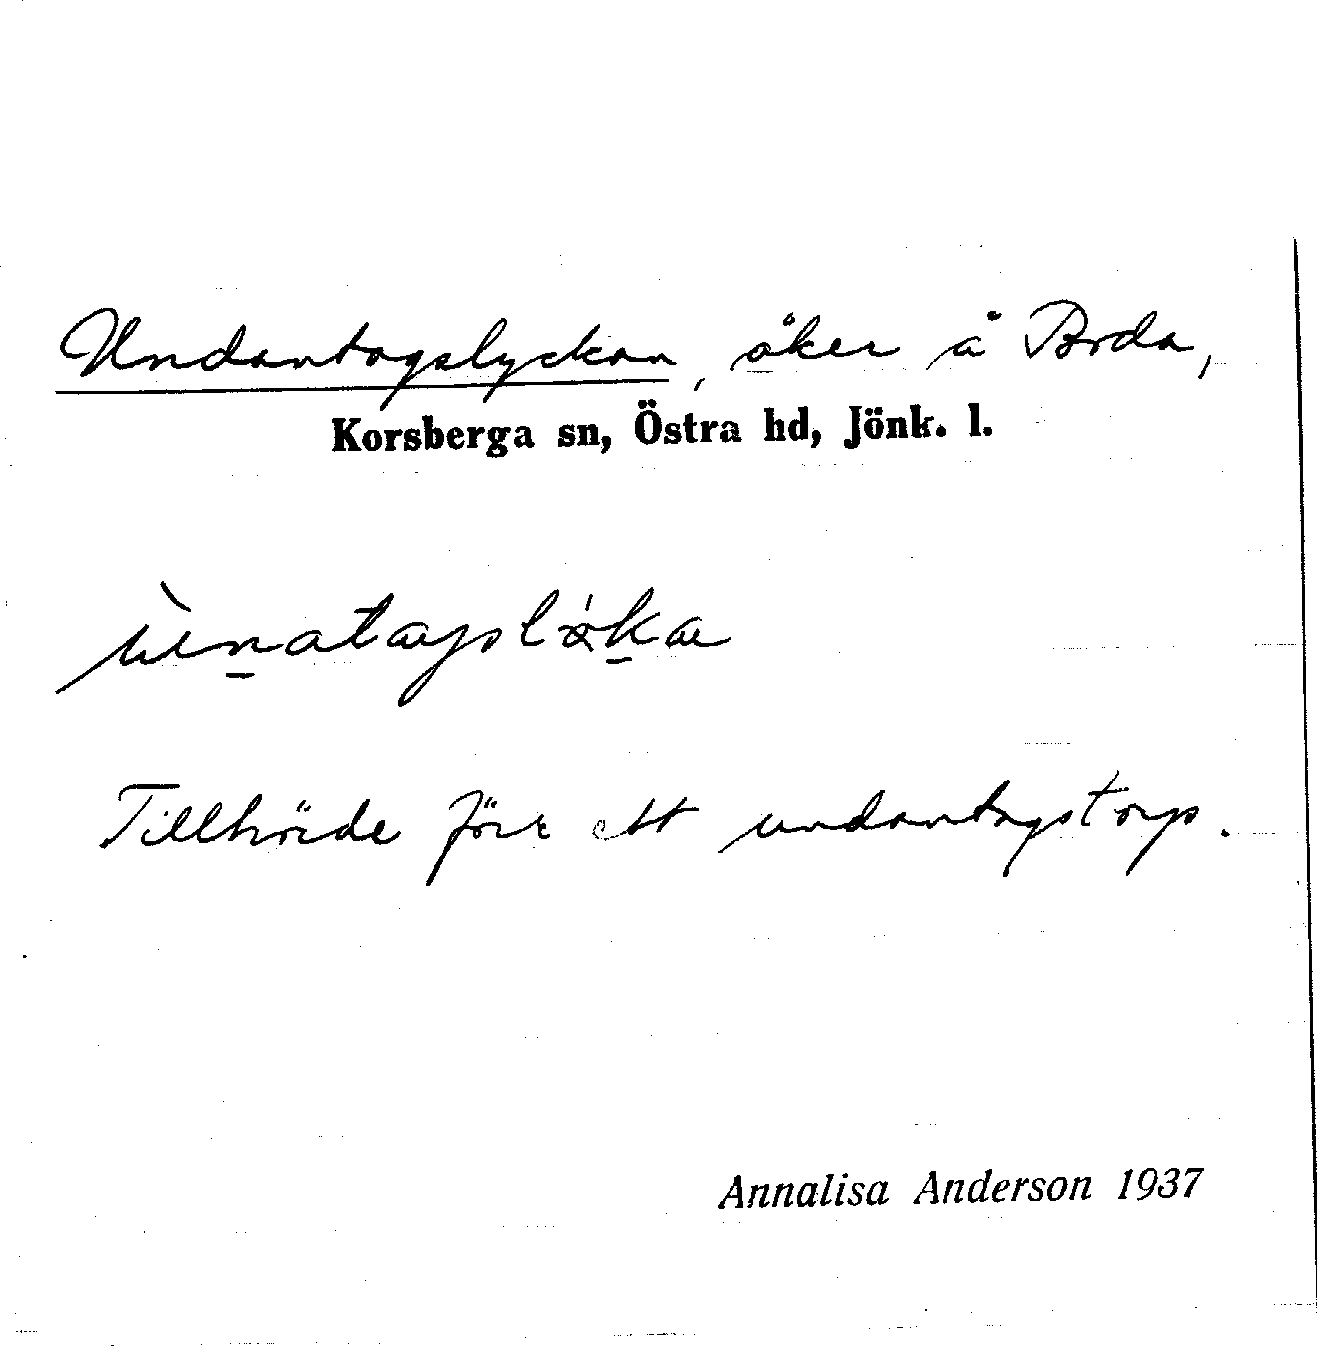 Undantagslyckan, åker å Boda,
Korsberga sn, Östra hd, Jönk. l.
Tillhörde förr ett undantagstorp.
Annalisa Anderson 1937